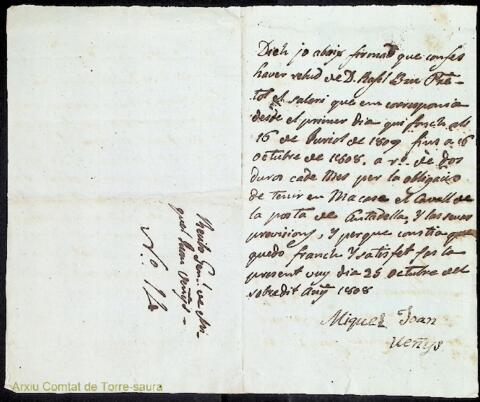 Dich jo abaix firmat que confes
haver rebud de D. Rafl
tol el salari que em corresponia
desde el primer dia qui fonch als
16 de Juriol de 1809 fins a 16
octubre de 1808. a ro. de dos
duros cade Mes per la obligacio
de tenir en Ma case el Cavall de
la posta de Ciutadella, y las sevas
provisions, y per que constia que
quedo franch y satisfet fas la
present vuy dia 25 octubre del
sobredit añy 1808
Miquel Joan
Veñys
de Mi
quel Juan Veñys
N.o 12
Arxiu Comtat de Torre-saura